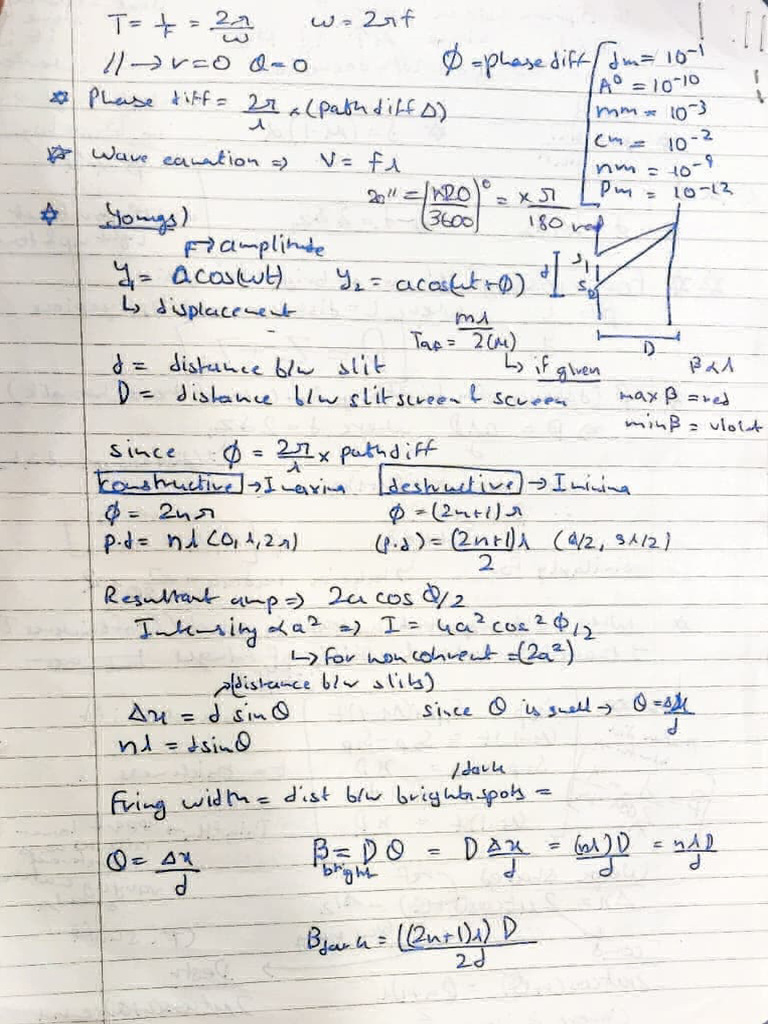 T = 1/f = 2π/ω    ω = 2πf
// → r=0 θ=0    ϕ = phase diff
dm = 10⁻¹
A⁰ = 10⁻¹⁰
mm = 10⁻³
cm = 10⁻²
nm = 10⁻⁹
Pm = 10⁻¹²
☆ Phase diff = 2π/λ × (path diff Δ)
☆ Wave equation ⇒ V = fλ
20'' = (1×20/3600)° = × π/180 rad
☆ Youngs)
↱ amplitude
y₁ = a cos(ωt)    y₂ = a cos(ωt + ϕ)
↳ displacement
d S₁ S₂ D
mλ/2(μ)
↳ if given
d = distance b/w slit    β α λ
D = distance b/w slit screen & screen    max β = red
min β = violet
since ϕ = 2π/λ × path diff
constructive → Imaxima    destructive → Iminima
ϕ = 2nπ    ϕ = (2n+1)π
p.d = nλ (0, λ, 2λ)    (p.d) = (2n+1)λ/2 (λ/2, 3λ/2)
Resultant amp ⇒ 2a cos ϕ/2
Intensity α a² ⇒ I = 4a² cos² ϕ/2
↳ for noncohrent = (2a²)
↗ (distance b/w slits)
Δx = d sinθ    since θ is small → θ = Δx/d
nλ = d sinθ
/dark
Fring width = dist b/w bright spots =
θ = Δx/d    β = Dθ = D Δx/d = (nλ)D/d = nλD/d
bright
β dark = ((2n+1)λ) D/2d